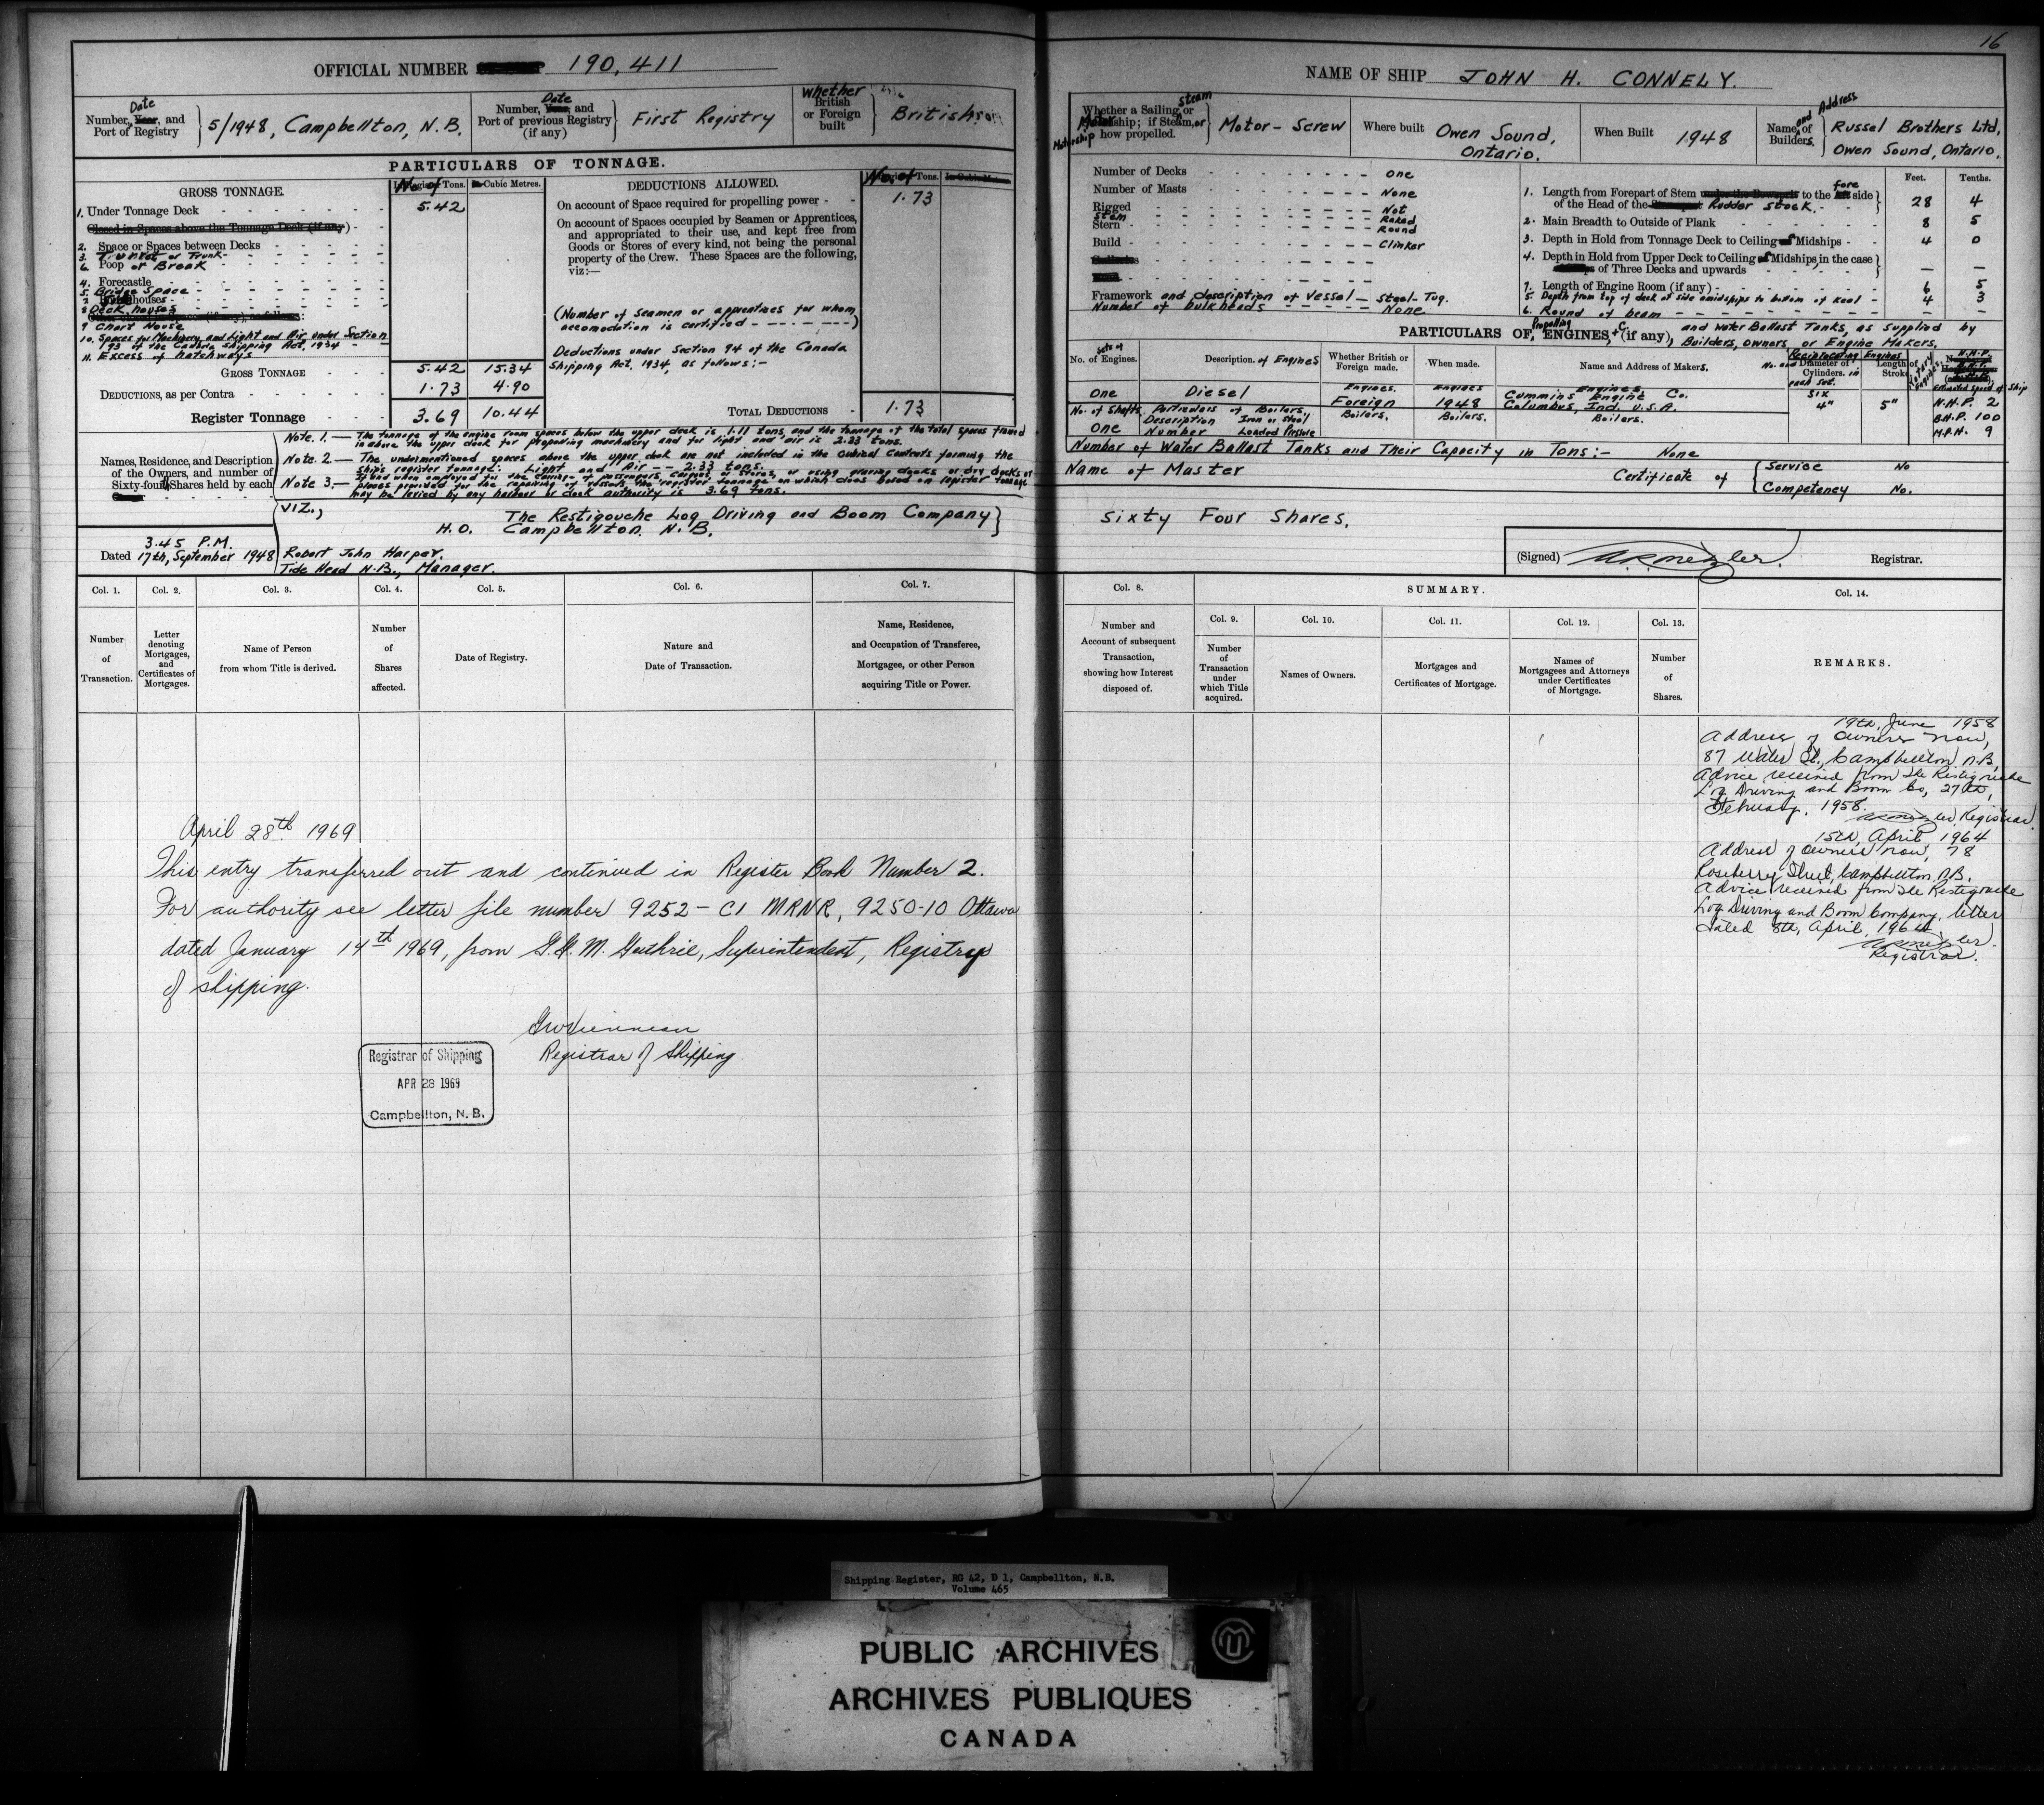 16
OFFICIAL NUMBER 190,411
NAME OF SHIP JOHN H. CONNELY.
Date
Number, Year, and
Port of Registry
5/1948, Campbellton, N.B.
Date
Number, Year, and
Port of previous Registry
(if any)
First Registry
Whether
British
or Foreign
built
British
Whether a Sailing, Steam or
Motor ship; if Steam, or
Motorship how propelled.
Motor - Screw
Where built
Owen Sound,
Ontario.
When Built
1948
Name and Address of
Builders.
Russel Brothers Ltd,
Owen Sound, Ontario.
PARTICULARS OF TONNAGE.
GROSS TONNAGE.
No. of Tons. Cubic Metres.
1. Under Tonnage Deck 5.42
Closed in Spaces above the Tonnage Deck (if any)
2. Space or Spaces between Decks
3. Turret or Trunk
6. Poop or Break
4. Forecastle
5. Bridge Space
8 Deck houses
9 Chart House
10. Spaces for Machinery, and Light and Air under Section
193 of the Canada Shipping Act, 1934
11. Excess of hatchways
GROSS TONNAGE 5.42 15.34
DEDUCTIONS, as per Contra 1.73 4.90
Register Tonnage 3.69 10.44
DEDUCTIONS ALLOWED.
No. of Tons.
On account of Space required for propelling power 1.73
On account of Spaces occupied by Seamen or Apprentices,
and appropriated to their use, and kept free from
Goods or Stores of every kind, not being the personal
property of the Crew. These Spaces are the following,
viz:—
(Number of Seamen or apprentices for whom
accomodation is certified)
Deductions under Section 94 of the Canada
Shipping Act, 1934, as follows:-
TOTAL DEDUCTIONS 1.73
Number of Decks One
Number of Masts None
Rigged Not
Stem Raked
Stern Round
Build Clinker
Framework and description of vessel — Steel-Tug.
Number of bulkheads None.
Feet. Tenths.
1. Length from Forepart of Stem under the Bowsprit to the fore side
of the Head of the Rudder Stock 28 4
2. Main Breadth to Outside of Plank 8 5
3. Depth in Hold from Tonnage Deck to Ceiling at Midships 4 0
4. Depth in Hold from Upper Deck to Ceiling at Midships, in the case
of Three Decks and upwards — —
7. Length of Engine Room (if any) 6 5
5. Depth from top of deck at side amidships to bottom of keel 4 3
6. Round of beam — —
PARTICULARS OF Propelling ENGINES, +c (if any), and Water Ballast Tanks, as supplied by
Builders, owners or Engine Makers.
No. of sets of Engines.
Description of Engines
Whether British or
Foreign made.
When made.
Name and Address of Makers.
Reciprocating Engines
No. and Diameter of
Cylinders in
each set.
Length of
Stroke
Rotary Engines
N.H.P.
Estimated Speed of Ship
One Diesel
Engines. Foreign
Engines 1948
Engines.
Cummins Engine Co.
Columbus, Ind. U.S.A.
Six
4" 5"
N.H.P. 2
B.H.P. 100
M.P.H. 9
No. of Shafts
One
Particulars of Boilers
Description Iron or Steel
Number Loaded Pressure
Boilers. Boilers. Boilers.
Number of Water Ballast Tanks and Their Capacity in Tons:- None
Name of Master
Certificate of
Service No
Competency No.
Note. 1.— The tonnage of the engine room spaces below the upper deck is 1.11 tons, and the tonnage of the total spaces framed
in above the upper deck for propelling machinery and for light and air is 2.33 tons.
Note. 2— The undermentioned spaces above the upper deck are not included in the Cubical Contents forming the
ship's register tonnage: Light and Air -- 2.33 tons.
Note 3— If and when employed for the carriage of passengers, cargoes or stores, or using graving docks or dry docks or
places provided for the repairing of vessels the register tonnage on which dues based on register tonnage
may be levied by any harbour or dock authority is 3.69 tons.
Names, Residence, and Description
of the Owners, and number of
Sixty-fourth Shares held by each
VIZ.,
The Restigouche Log Driving and Boom Company
H.O. Campbellton. N.B.
Sixty Four Shares.
3.45 P.M.
Dated 17th, September 1948
Robert John Harper.
Tide Head N.B., Manager.
(Signed) Registrar.
Col. 1. Col. 2. Col. 3. Col. 4. Col. 5. Col. 6. Col. 7. Col. 8. SUMMARY. Col. 14.
Col. 9. Col. 10. Col. 11. Col. 12. Col. 13.
Number
of
Transaction.
Letter
denoting
Mortgages,
and
Certificates of
Mortgages.
Name of Person
from whom Title is derived.
Number
of
Shares
affected.
Date of Registry.
Nature and
Date of Transaction.
Name, Residence,
and Occupation of Transferee,
Mortgagee, or other Person
acquiring Title or Power.
Number and
Account of subsequent
Transaction,
showing how Interest
disposed of.
Number
of
Transaction
under
which Title
acquired.
Names of Owners.
Mortgages and
Certificates of Mortgage.
Names of
Mortgagees and Attorneys
under Certificates
of Mortgage.
Number
of
Shares.
REMARKS.
19th, June 1958
Address of Owners now,
87 Water St., Campbellton N.B.
Advice received from the Restigouche
Log Driving and Boom Co, 27th,
February, 1958.
Registrar
15th, April 1964
Address of Owners now, 78
Roseberry Street, Campbellton, N.B.
Advice received from the Restigouche
Log Driving and Boom Company, letter
dated 8th, April, 1964.
Registrar.
April 28th 1969
This entry transferred out and continued in Register Book Number 2.
For authority see letter file number 9252 - C1 MRNR, 9250-10 Ottawa
dated January 14th 1969, from G.M. Guthrie, Superintendent, Registrar
of shipping.
Registrar of Shipping
Registrar of Shipping
APR 28 1969
Campbellton, N. B.
Shipping Register, RG 42, D 1, Campbellton, N.B.
Volume 465
PUBLIC ARCHIVES
ARCHIVES PUBLIQUES
CANADA